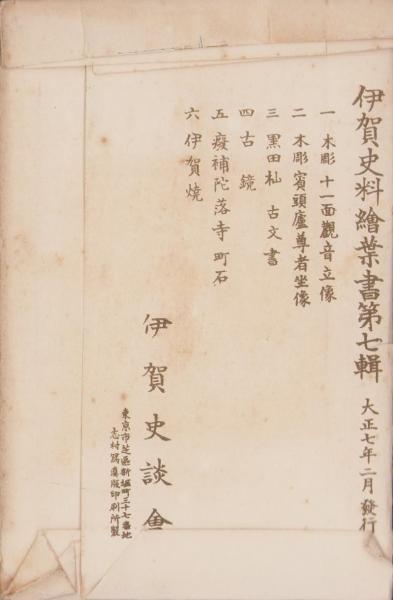 伊賀史料繪葉書第七輯 大正七年二月發行
一 木彫 十一面觀音立像
二 木彫 賓頭盧尊者坐像
三 黒田杣 古文書
四 古鏡
五 廢補陀落寺町石
六 伊賀燒
伊賀史談會
東京市芝區新堀町三十七番地
志村寫眞版印刷所製